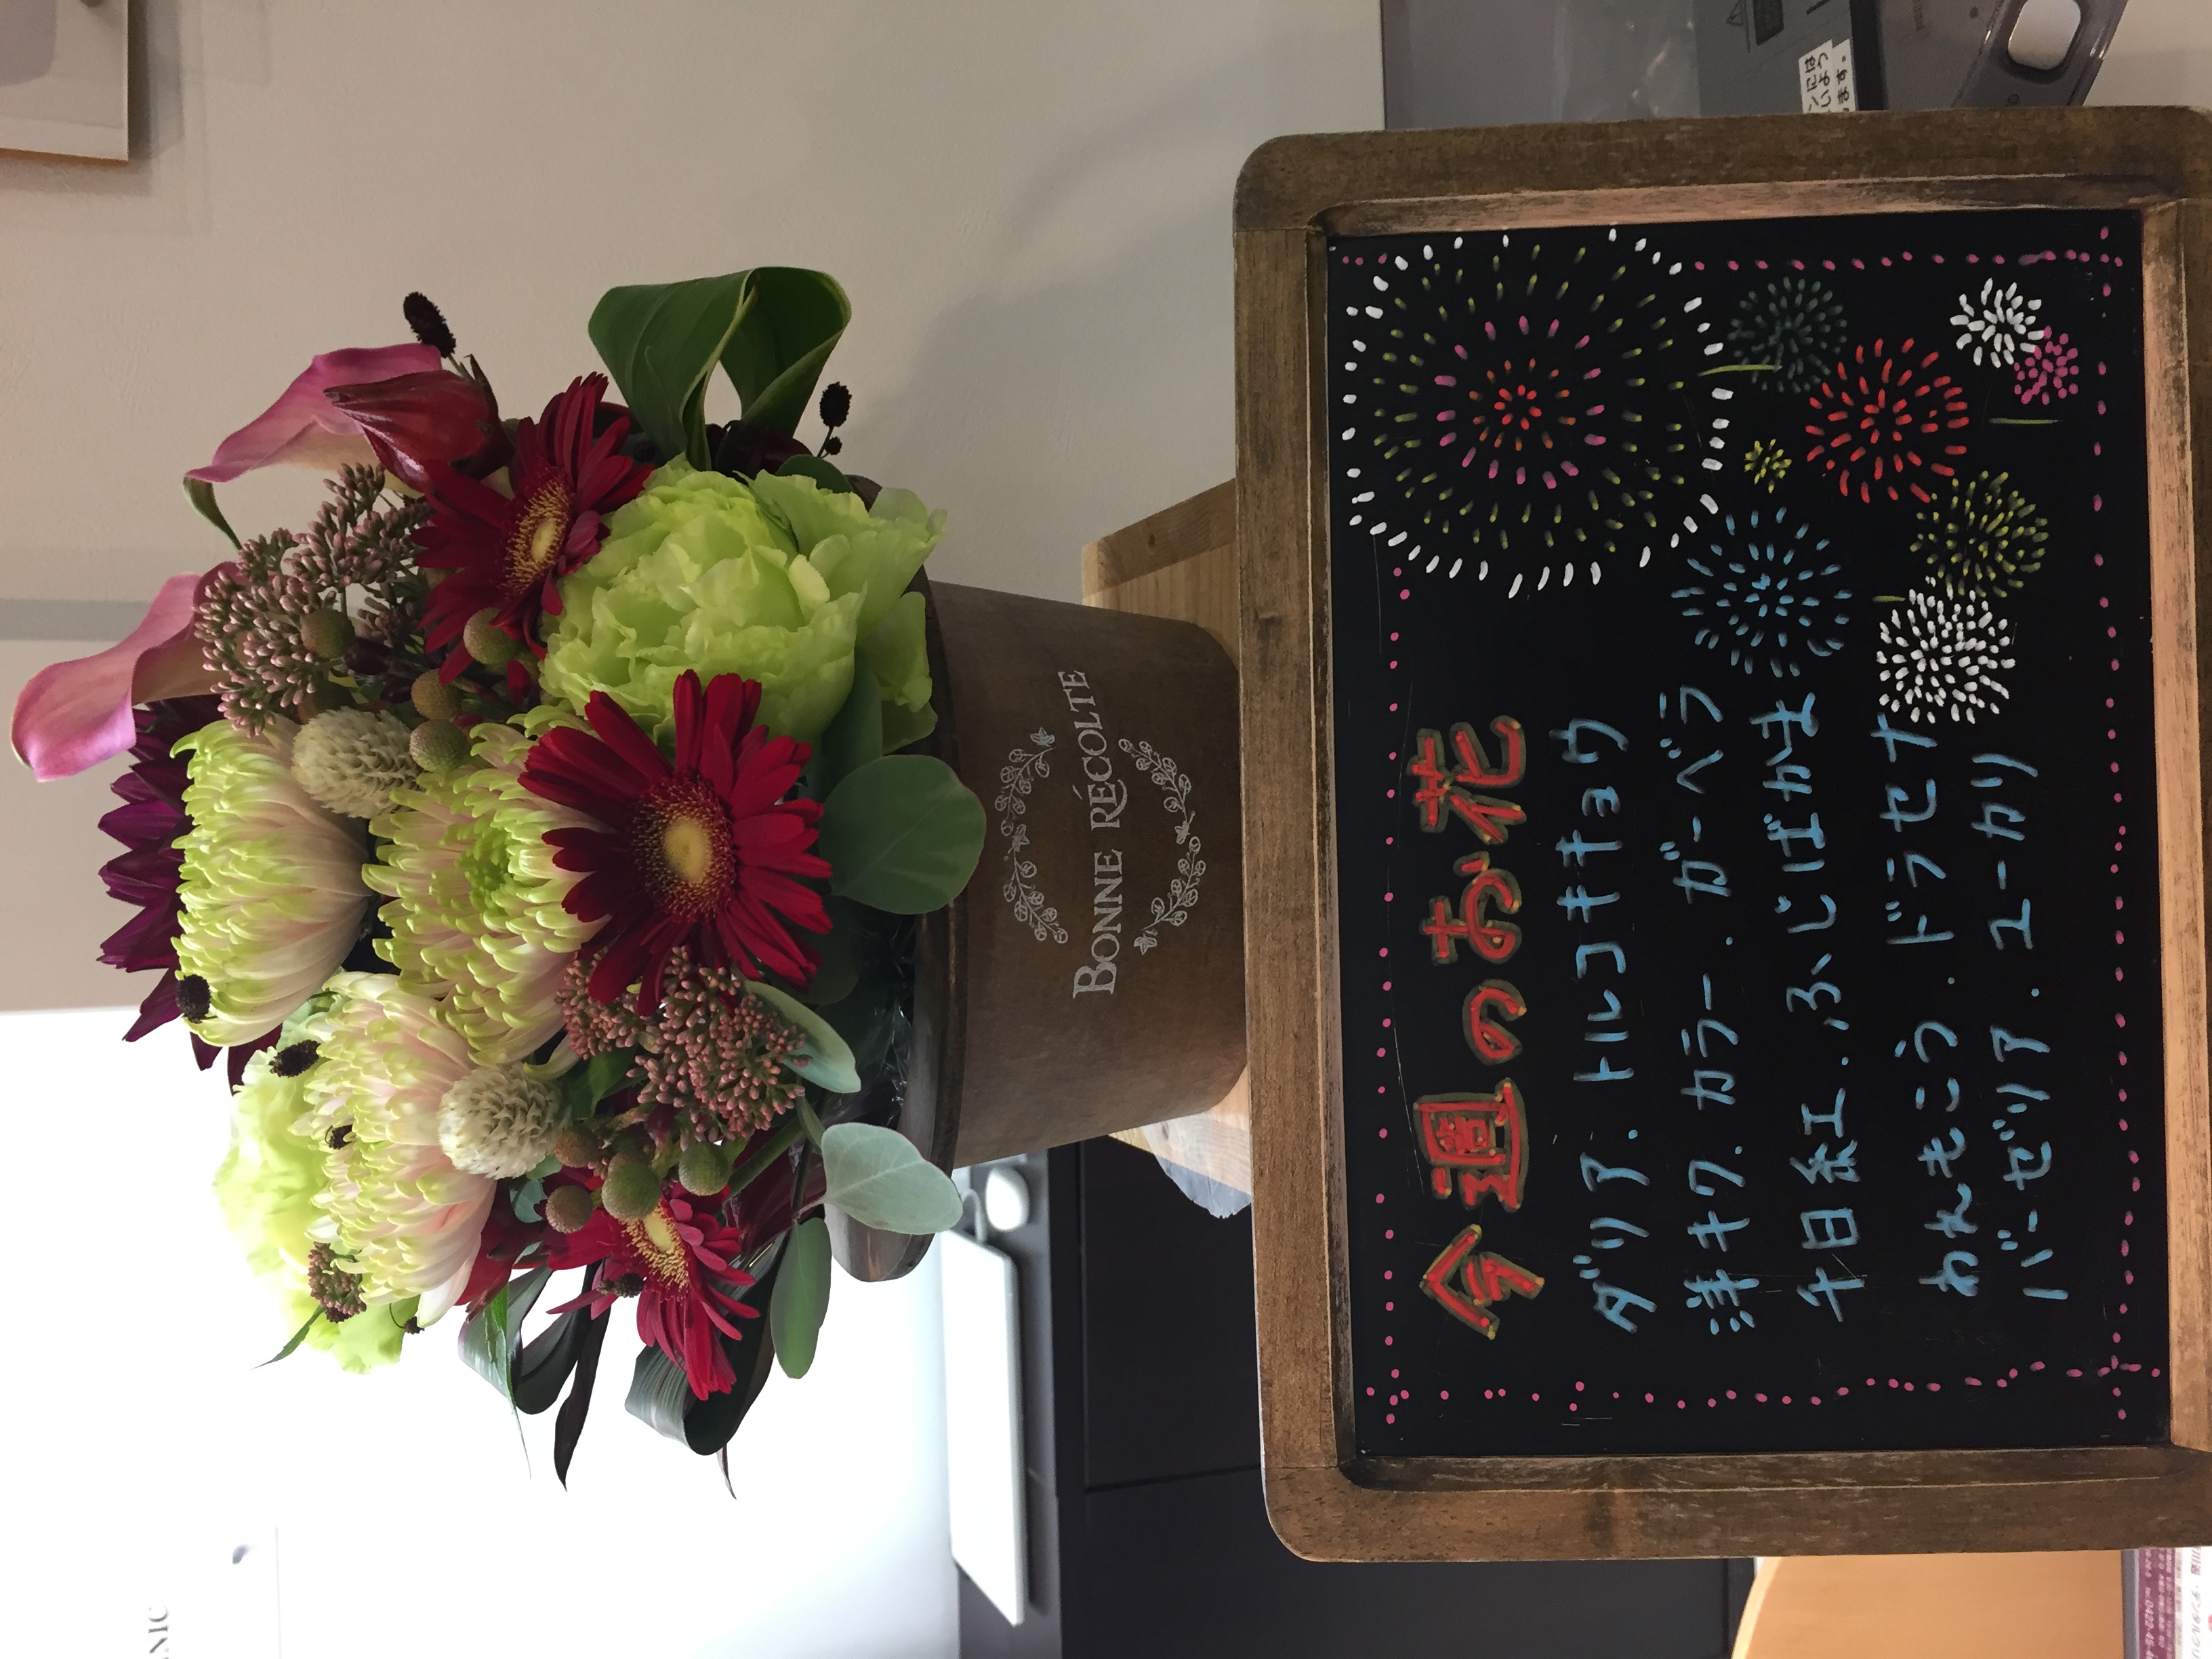 BONNE RÉCOLTE
今週のお花
ダリア．トルコキキョウ
洋キク．カラー．ガーベラ
千日紅．ふじばかま
われもこう．ドラセナ
バーゼリア．ユーカリ
には
いよう
ます。
ANIC